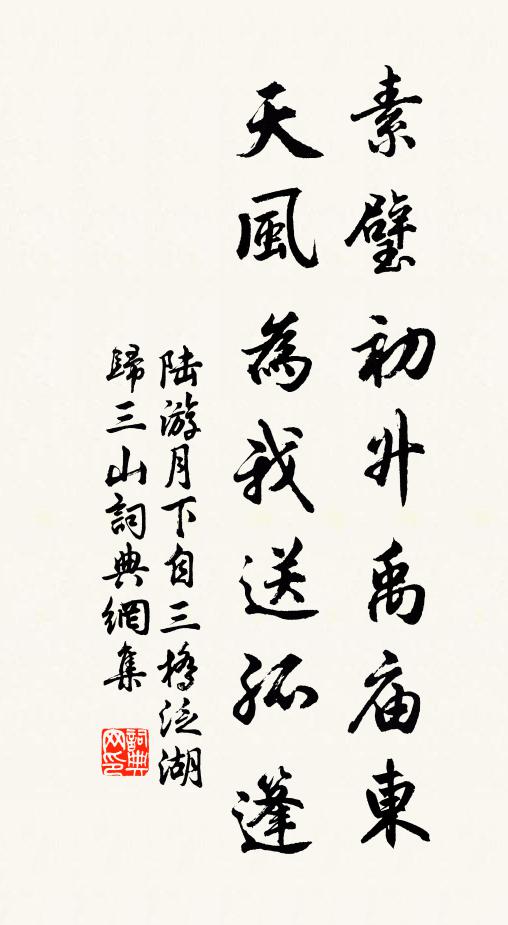 素璧初升禹庙東
天風為我送孤篷
陆游月下自三橋泛湖
歸三山詞典網集
詞典网印